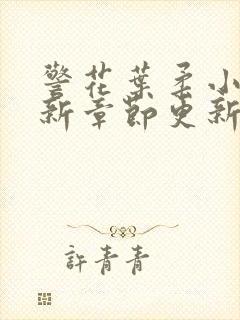 警花葉柔小
新章節更新
許青青